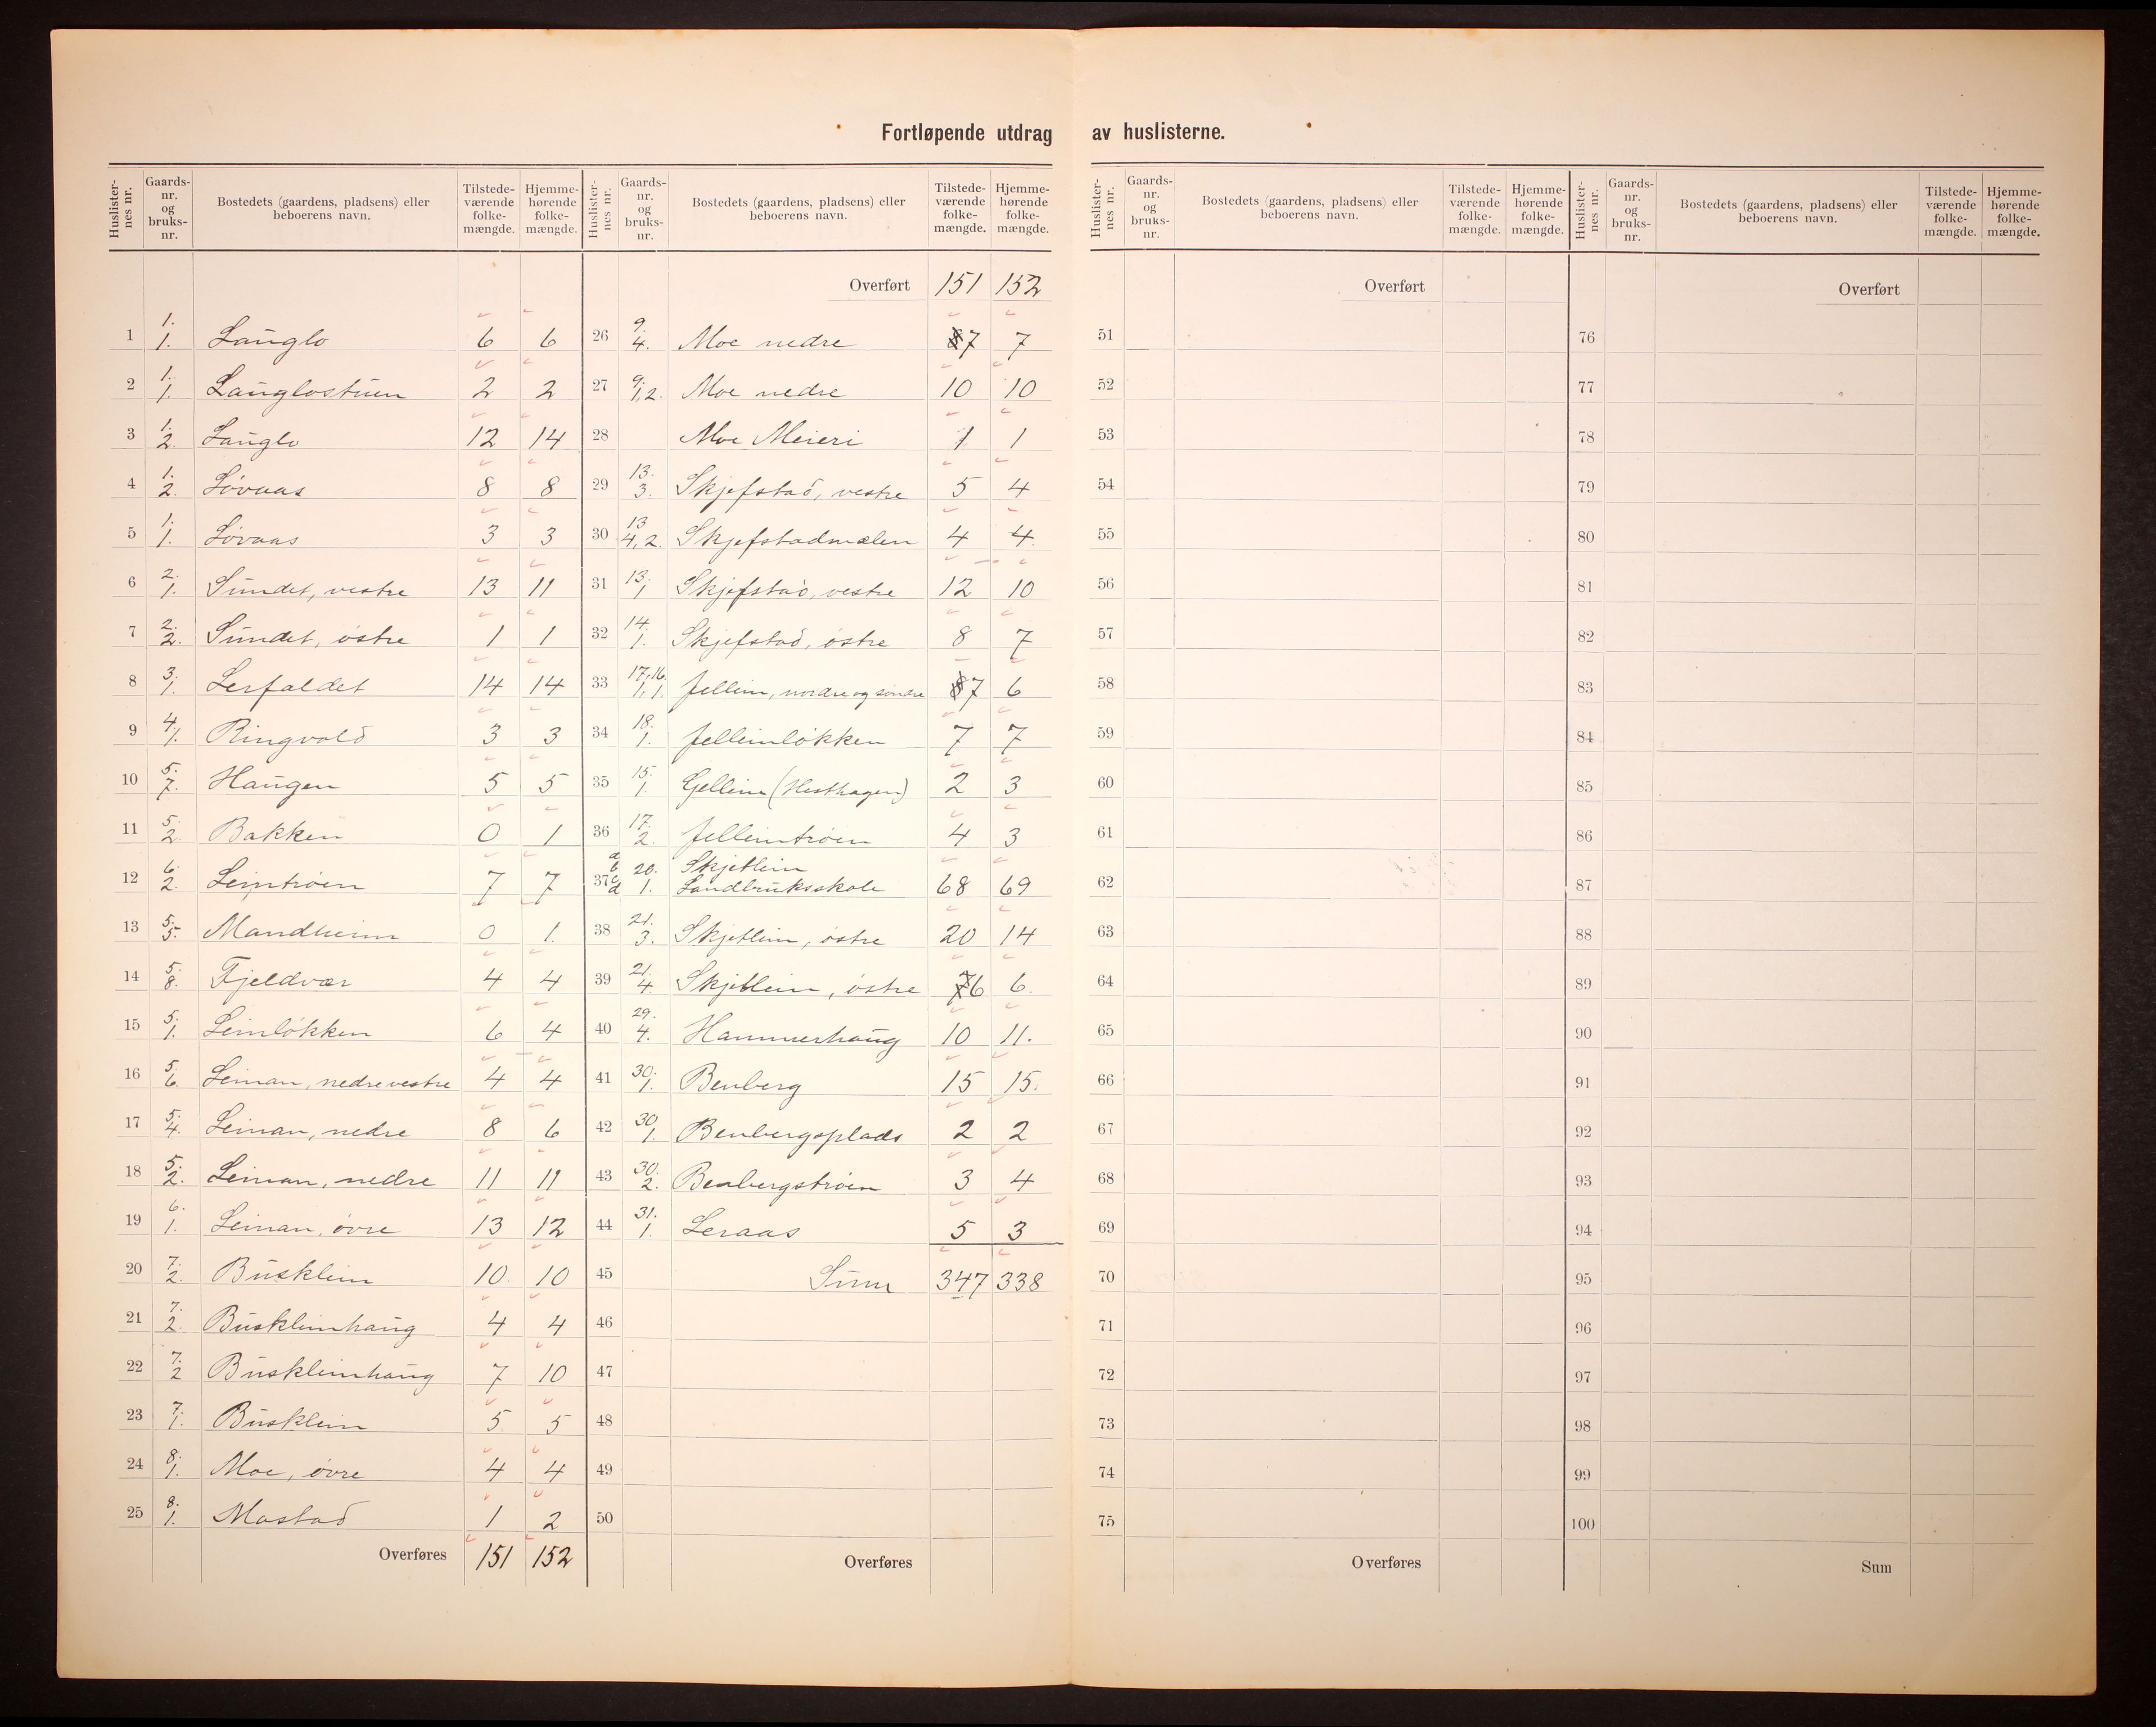 Fortløpende utdrag av huslisterne.
Huslisternes nr. | Gaards-nr. og bruks-nr. | Bostedets (gaardens, pladsens) eller beboerens navn. | Tilstedeværende folkemængde. | Hjemmehørende folkemængde.
1 | 1. 1. | Lauglo | 6 | 6
2 | 1. 1. | Lauglostuen | 2 | 2
3 | 1. 2. | Lauglo | 12 | 14
4 | 1. 2. | Løvaas | 8 | 8
5 | 1. 1. | Løvaas | 3 | 3
6 | 2. 1. | Sundet, vestre | 13 | 11
7 | 2. 2. | Sundet, østre | 1 | 1
8 | 3. 1. | Lerfaldet | 14 | 14
9 | 4. 1. | Ringvold | 3 | 3
10 | 5. 7. | Haugen | 5 | 5
11 | 5. 2. | Bakken | 0 | 1
12 | 6. 2. | Leintrøen | 7 | 7
13 | 5. 5. | Mandheim | 0 | 1.
14 | 5. 8. | Fjeldvær | 4 | 4
15 | 5. 1. | Leinløkken | 6 | 4
16 | 5. 6. | Leinan, nedre vestre | 4 | 4
17 | 5. 4. | Leinan, nedre | 8 | 6
18 | 5. 2. | Leinan, nedre | 11 | 11
19 | 6. 1. | Leinan, øvre | 13 | 12
20 | 7. 2. | Busklein | 10. | 10
21 | 7. 2. | Buskleinhaug | 4 | 4
22 | 7. 2 | Buskleinhaug | 7 | 10
23 | 7. 1. | Busklein | 5. | 5
24 | 8. 1. | Moe, øvre | 4 | 4
25 | 8. 1. | Mostad | 1 | 2
Overføres | 151 | 152
Huslisternes nr. | Gaards-nr. og bruks-nr. | Bostedets (gaardens, pladsens) eller beboerens navn. | Tilstedeværende folkemængde. | Hjemmehørende folkemængde.
Overført | 151 | 152
26 | 9. 4. | Moe nedre | 7 | 7
27 | 9. 1,2. | Moe nedre | 10 | 10
28 | Moe Meieri | 1 | 1
29 | 13. 3. | Skjefstad, vestre | 5 | 4
30 | 13 4,2. | Skjefstadmælen | 4 | 4.
31 | 13. 1 | Skjefstad, vestre | 12 | 10
32 | 14. 1. | Skjefstad, østre | 8 | 7
33 | 17,16. 1,1. | Jellein, nordre og søndre | 7 | 6
34 | 18. 1. | Jelleinløkken | 7 | 7
35 | 15. 1. | Gjellein (Hesthagen) | 2 | 3
36 | 17. 2. | Jelleintrøen | 4 | 3
37 a b c d | 20. 1. | Skjetlein Landbruksskole | 68 | 69
38 | 21. 3. | Skjetlein, østre | 20 | 14
39 | 21. 4. | Skjetlein, østre | 6 | 6.
40 | 29. 4. | Hammerhaug | 10 | 11.
41 | 30. 1. | Benberg | 15 | 15.
42 | 30, 1. | Benbergsplads | 2 | 2
43 | 30. 2. | Benbergstrøen | 3 | 4
44 | 31. 1. | Leraas | 5 | 3
45 | Sum | 347 | 338
46
47
48
49
50
Overføres
Huslisternes nr. | Gaards-nr. og bruks-nr. | Bostedets (gaardens, pladsens) eller beboerens navn. | Tilstedeværende folkemængde. | Hjemmehørende folkemængde.
Overført
51
52
53
54
55
56
57
58
59
60
61
62
63
64
65
66
67
68
69
70
71
72
73
74
75
Overføres
Huslisternes nr. | Gaards-nr. og bruks-nr. | Bostedets (gaardens, pladsens) eller beboerens navn. | Tilstedeværende folkemængde. | Hjemmehørende folkemængde.
Overført
76
77
78
79
80
81
82
83
84
85
86
87
88
89
90
91
92
93
94
95
96
97
98
99
100
Sum